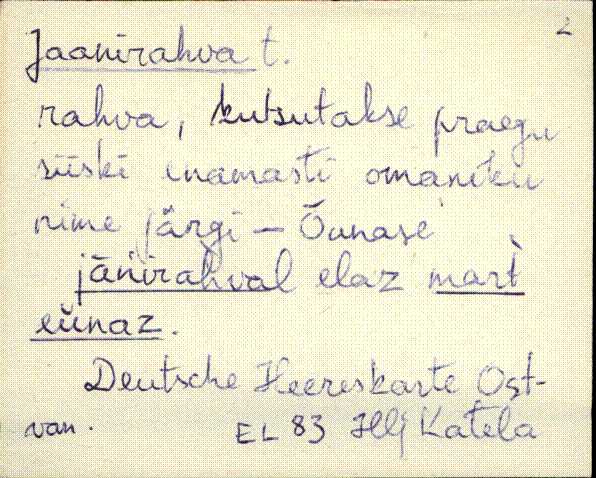 2
Jaanirahva t.
rahva, kutsutakse praegu
siiski enamasti omaniku
nime järgi – Õunase
jāńirahval elaz mart̀
eŭnaz.
Deutsche Heereskarte Ost-
van. EL 83 Hlj Katela